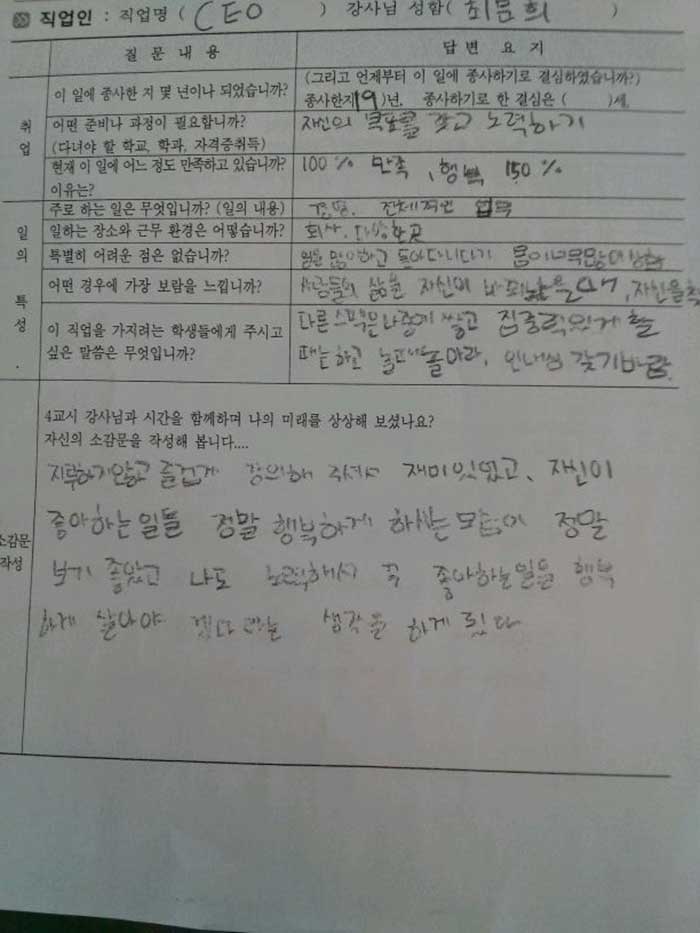 직업인 : 직업명 ( CEO ) 강사님 성함( 최문희 )
질 문 내 용 답 변 요 지
취업
이 일에 종사한 지 몇 년이나 되었습니까? (그리고 언제부터 이 일에 종사하기로 결심하였습니까?)
종사한지19)년. 종사하기로 한 결심은 ( )세.
어떤 준비나 과정이 필요합니까? 자신의 목표를 갖고 노력하기
(다녀야 할 학교, 학과, 자격증취득)
현재 이 일에 어느 정도 만족하고 있습니까? 100 % 만족 , 행복 150 %
이유는?
일의 특성
주로 하는 일은 무엇입니까? (일의 내용) 경영. 전체적인 업무
일하는 장소와 근무 환경은 어떻습니까? 회사. 다양한곳
특별히 어려운 점은 없습니까? 일을 많이하고 돌아다니다가 몸이너무많이
어떤 경우에 가장 보람을 느낍니까? 사람들의 삶을 자신이 바뀌 을때 , 자신을
이 직업을 가지려는 학생들에게 주시고 다른 나중에 쌓고 집중력있게 할
싶은 말씀은 무엇입니까? 때는 하고 놀고 놀아라. 인내심 갖기바람
소감문 작성
4교시 강사님과 시간을 함께하며 나의 미래를 상상해 보셨나요?
자신의 소감문을 작성해 봅니다....
지루하지않고 즐겁게 강의해 주셔서 재미있었고, 자신이
좋아하는일들 정말 행복하게 하시는 모습이 정말
보기 좋았고 나도 노력해서 꼭 좋아하는일을 행복
하게 살아야 겠다 라는 생각을 하게 됬다